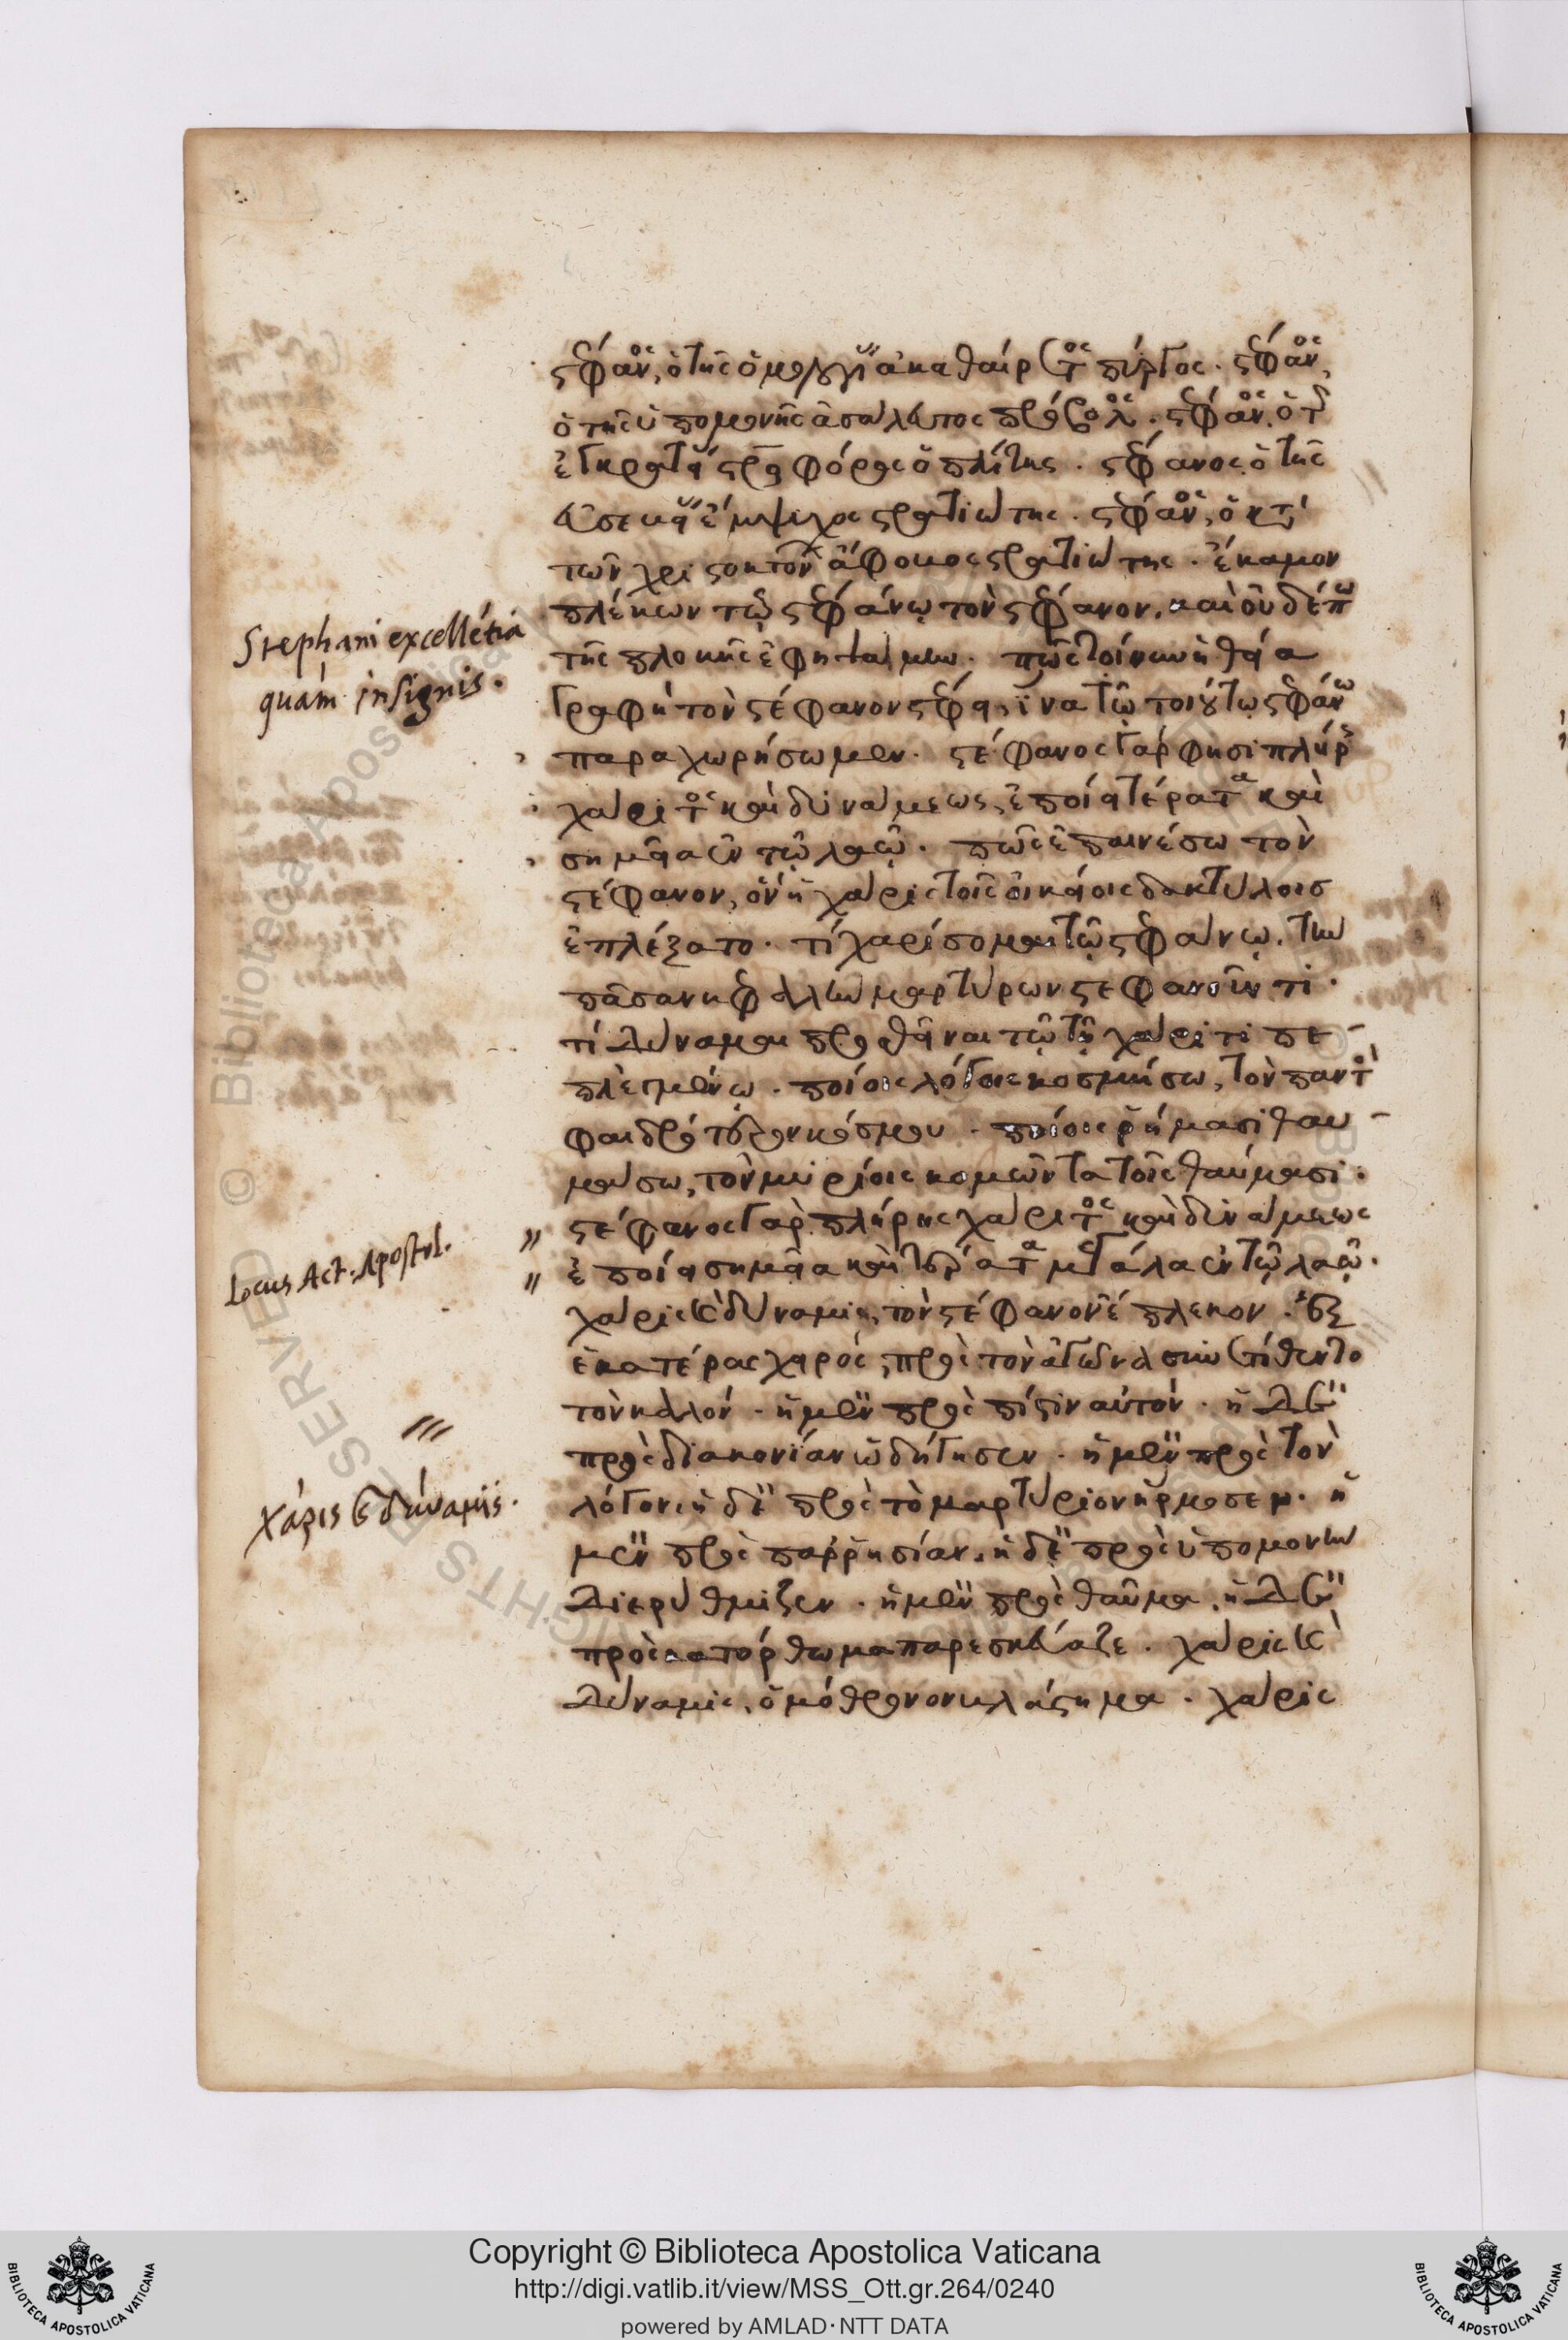 στέφανος, ὁ τῆς ὁμολογίας ἀκαθαίρετος πύργος. στέφανος,
ὁ τῆς ὑπομονῆς ἀσάλευτος πρόβολος. στέφανος, ὁ τῆς
ἐγκρατείας στρα φόρος ὁπλίτης. στέφανος, ὁ τῆς
εὐσεβείας ἔμψυχος στρατιώτης. στέφανος, ὁ κατὰ
τῶν χριστοκτόνων ἄφοβος στρατιώτης. ἔκαμον
πλέκων τῷ στεφάνῳ τὸν στέφανον, καὶ οὐδέπω
τῆς πλοκῆς ἐφηψάμην. πῶς τοίνυν ἡ θεία
γραφὴ τὸν στέφανον στέφει, ἵνα τῷ τοιούτῳ στεφάνω
παραχωρήσωμεν. στέφανος γάρ φησι πλήρης
χάριτος καὶ δυνάμεως, ἐποίει τέρατα καὶ
σημεῖα ἐν τῷ λαῷ. πῶς ἐπαινέσω τὸν
στέφανον, ὃν ἡ χάρις τοῖς οἰκείοις δακτύλοις
ἐπλέξατο. τί χαρίσομαι τῷ στεφάνῳ, τὴν
πᾶσαν κεφαλὴν μαρτύρων στεφανοῦντι.
τί δύναμαι προσθεῖναι τῷ τῇ χάριτι πε-
πλεγμένῳ. ποίοις λόγοις κοσμήσω, τὸν παντὸς
φαιδρότερον κόσμου. ποίοις ῥήμασι θαυ-
μάσω, τὸν μυρίοις κομῶντα τοῖς θαύμασι.
στέφανος γὰρ πλήρης χάριτος καὶ δυνάμεως
ἐποίει σημεῖα καὶ τέρατα μεγάλα ἐν τῷ λαῷ.
χάρις καὶ δύναμις, τὸν στέφανον ἔπλεκον. ἐξ
ἑκατέρας χειρὸς, πρὸς τὸν ἀγῶνα συνετίθεντο
τὸν καλόν. ἡ μὲν πρὸς πίστιν αὐτόν. ἡ δὲ
πρὸς διακονίαν ὡδήγησεν. ἡ μὲν πρὸς τὸν
λόγον, ἡ δὲ πρὸς τὸ μαρτύριον ἥρμοσεν. ἡ
μὲν πρὸς παῤῥησίαν, ἡ δὲ πρὸς ὑπομονὴν
διερύθμιζεν. ἡ μὲν πρὸς θαῦμα, ἡ δὲ
πρὸς κατόρθωμα παρεσκεύαζε. χάρις καὶ
δύναμις, ὁμόθρονον βλάστημα. χάρις
Stephani excellétia
quám insignis.
Locus Act. Apostol.
χάρις καὶ δύναμις.
Copyright © Biblioteca Apostolica Vaticana
http://digi.vatlib.it/view/MSS_Ott.gr.264/0240
powered by AMLAD·NTT DATA
BIBLIOTECA APOSTOLICA VATICANA
BIBLIOTECA APOSTOLICA VATICANA